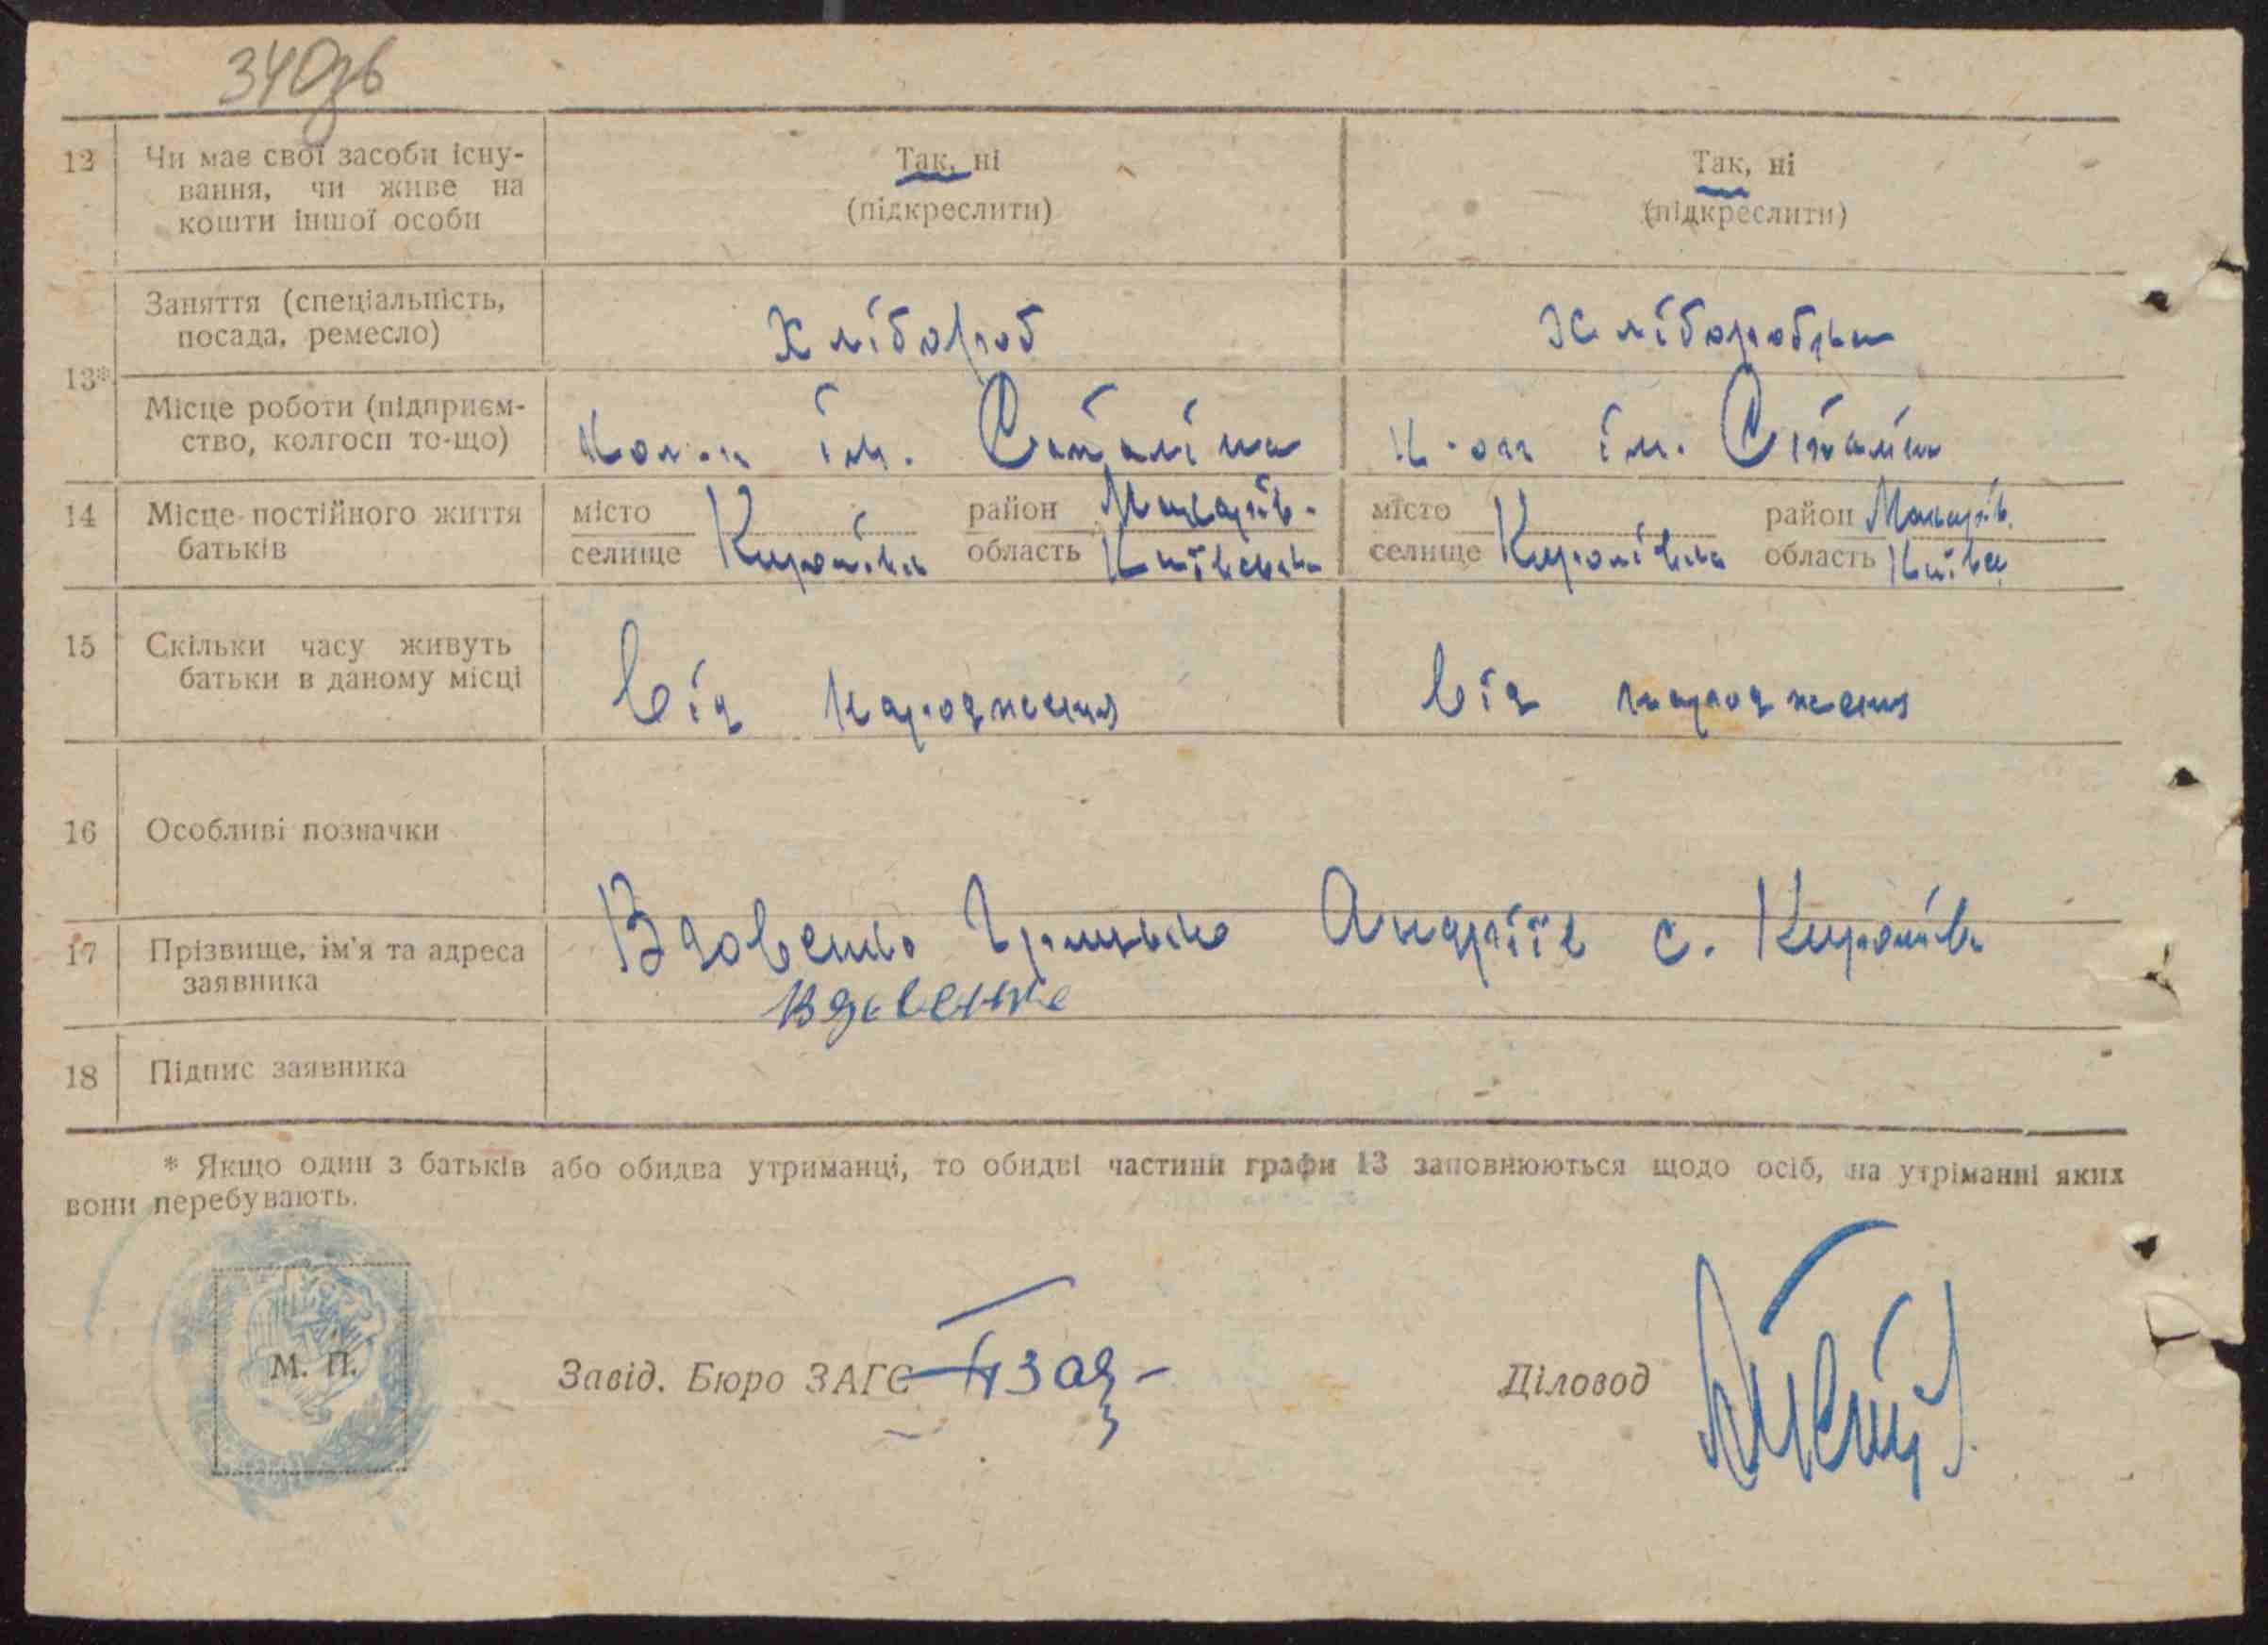 340зв
12 Чи має свої засоби існу-
вання, чи живе на
кошти іншої особи
Так, ні
(підкреслити)
Так, ні
(підкреслити)
13*
Заняття (спеціальність,
посада, ремесло)
Хлібороб
Хліборобка
Місце роботи (підприєм-
ство, колгосп то-що)
ім. Сталіна
ім. Сталіна
14 Місце постійного життя
батьків
місто
селище
район Макарів.
область Київська
місто
селище
район Макарів.
область Київс
15 Скільки часу живуть
батьки в даному місці
від народження
від народження
16 Особливі позначки
17 Прізвище, ім'я та адреса
заявника
Вдовенко Грицько Андріїв с.
Вдовенко
18 Підпис заявника
* Якщо один з батьків або обидва утриманці, то обидві частини графи 13 заповнюються щодо осіб, на утріманні яких
вони перебувають.
М. П.
Завід. Бюро ЗАГС
Діловод